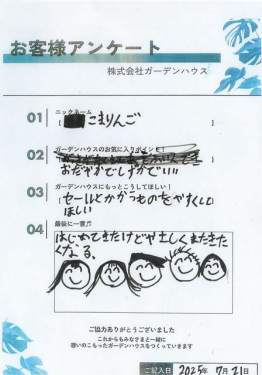 お客様アンケート
株式会社ガーデンハウス
01 ニックネーム
[ こまりんご ]
02 ガーデンハウスのお気に入りポイント!
おだやかでしずかでいい
03 ガーデンハウスにもっとこうしてほしい!
セールとかかうものをやすくして
ほしい
04 最後に一言♬
はじめてきたけどやさしくまたきた
くなる。
ご協力ありがとうございました
これからもみなさまと一緒に
想いのこもったガーデンハウスをつくっていきます
ご記入日 2025年 7月 21日